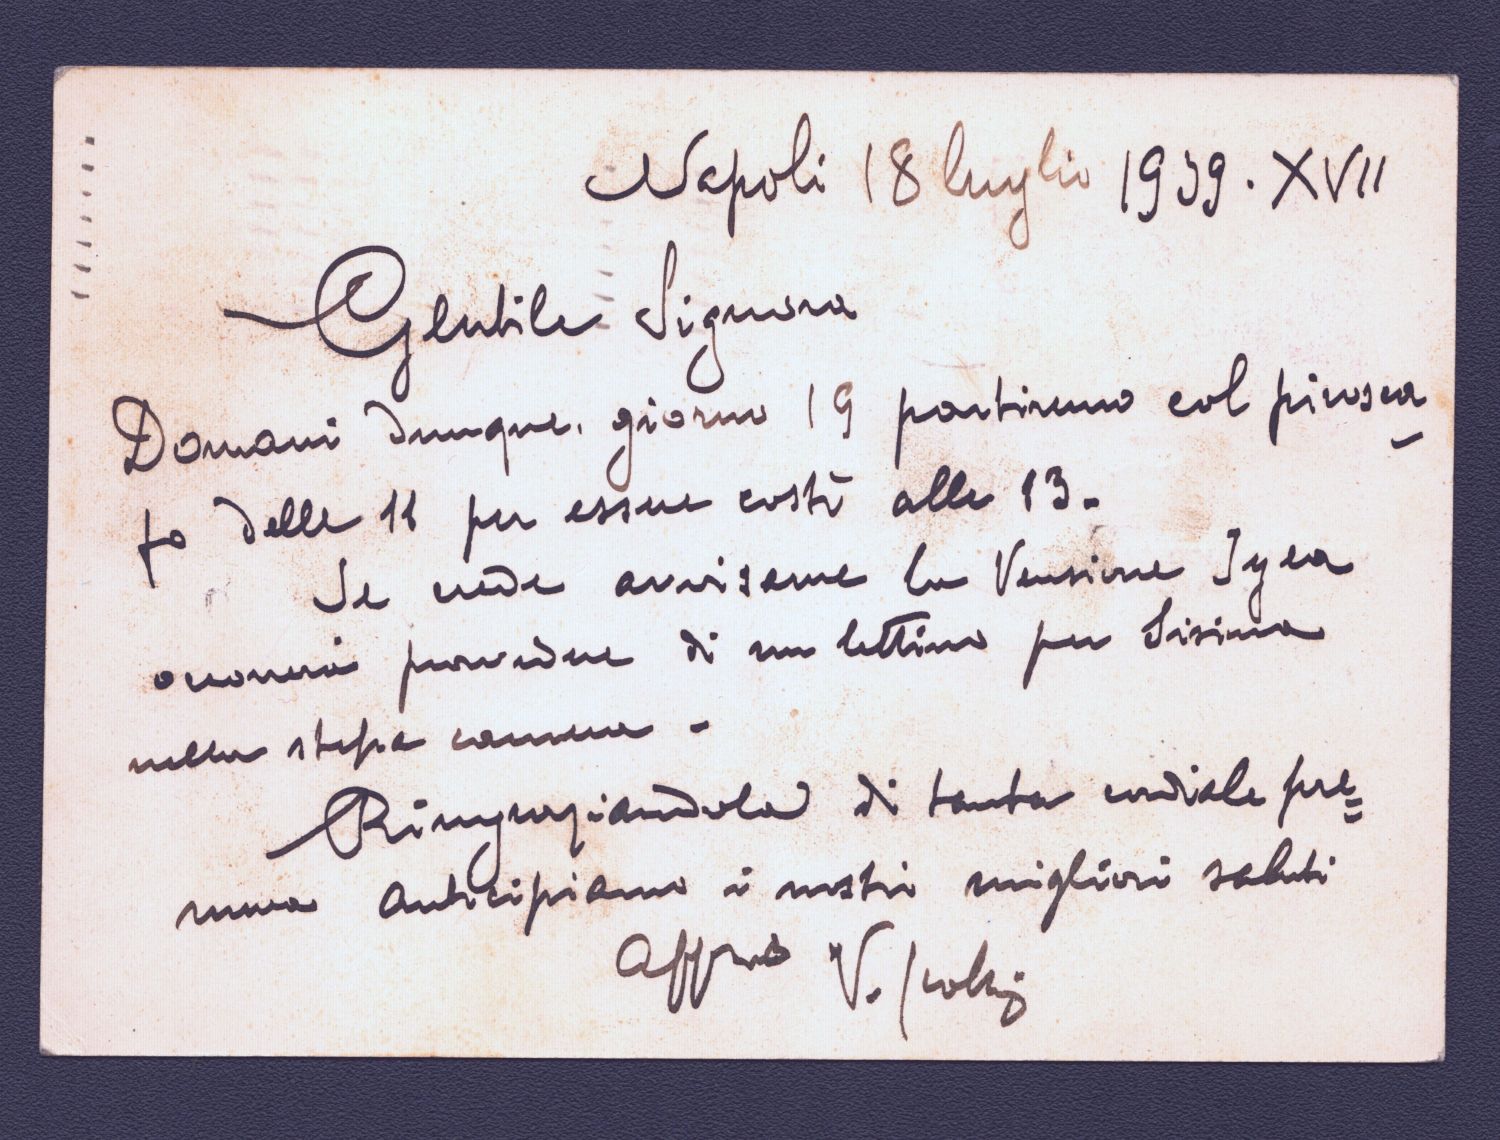 Napoli 18 luglio 1939. XVII
Gentile Signora
Domani dunque, giorno 19 partiremo col pirosca-
fo delle 11 per essere costì alle 13.
Se vede avvisarne la Pensione Igea
occorrerà provvedere di un lettino per Sisina
nella stessa camera -
Ringraziandola di tanta cordiale pre=
mura anticipiamo i nostri migliori saluti
Affmo V.